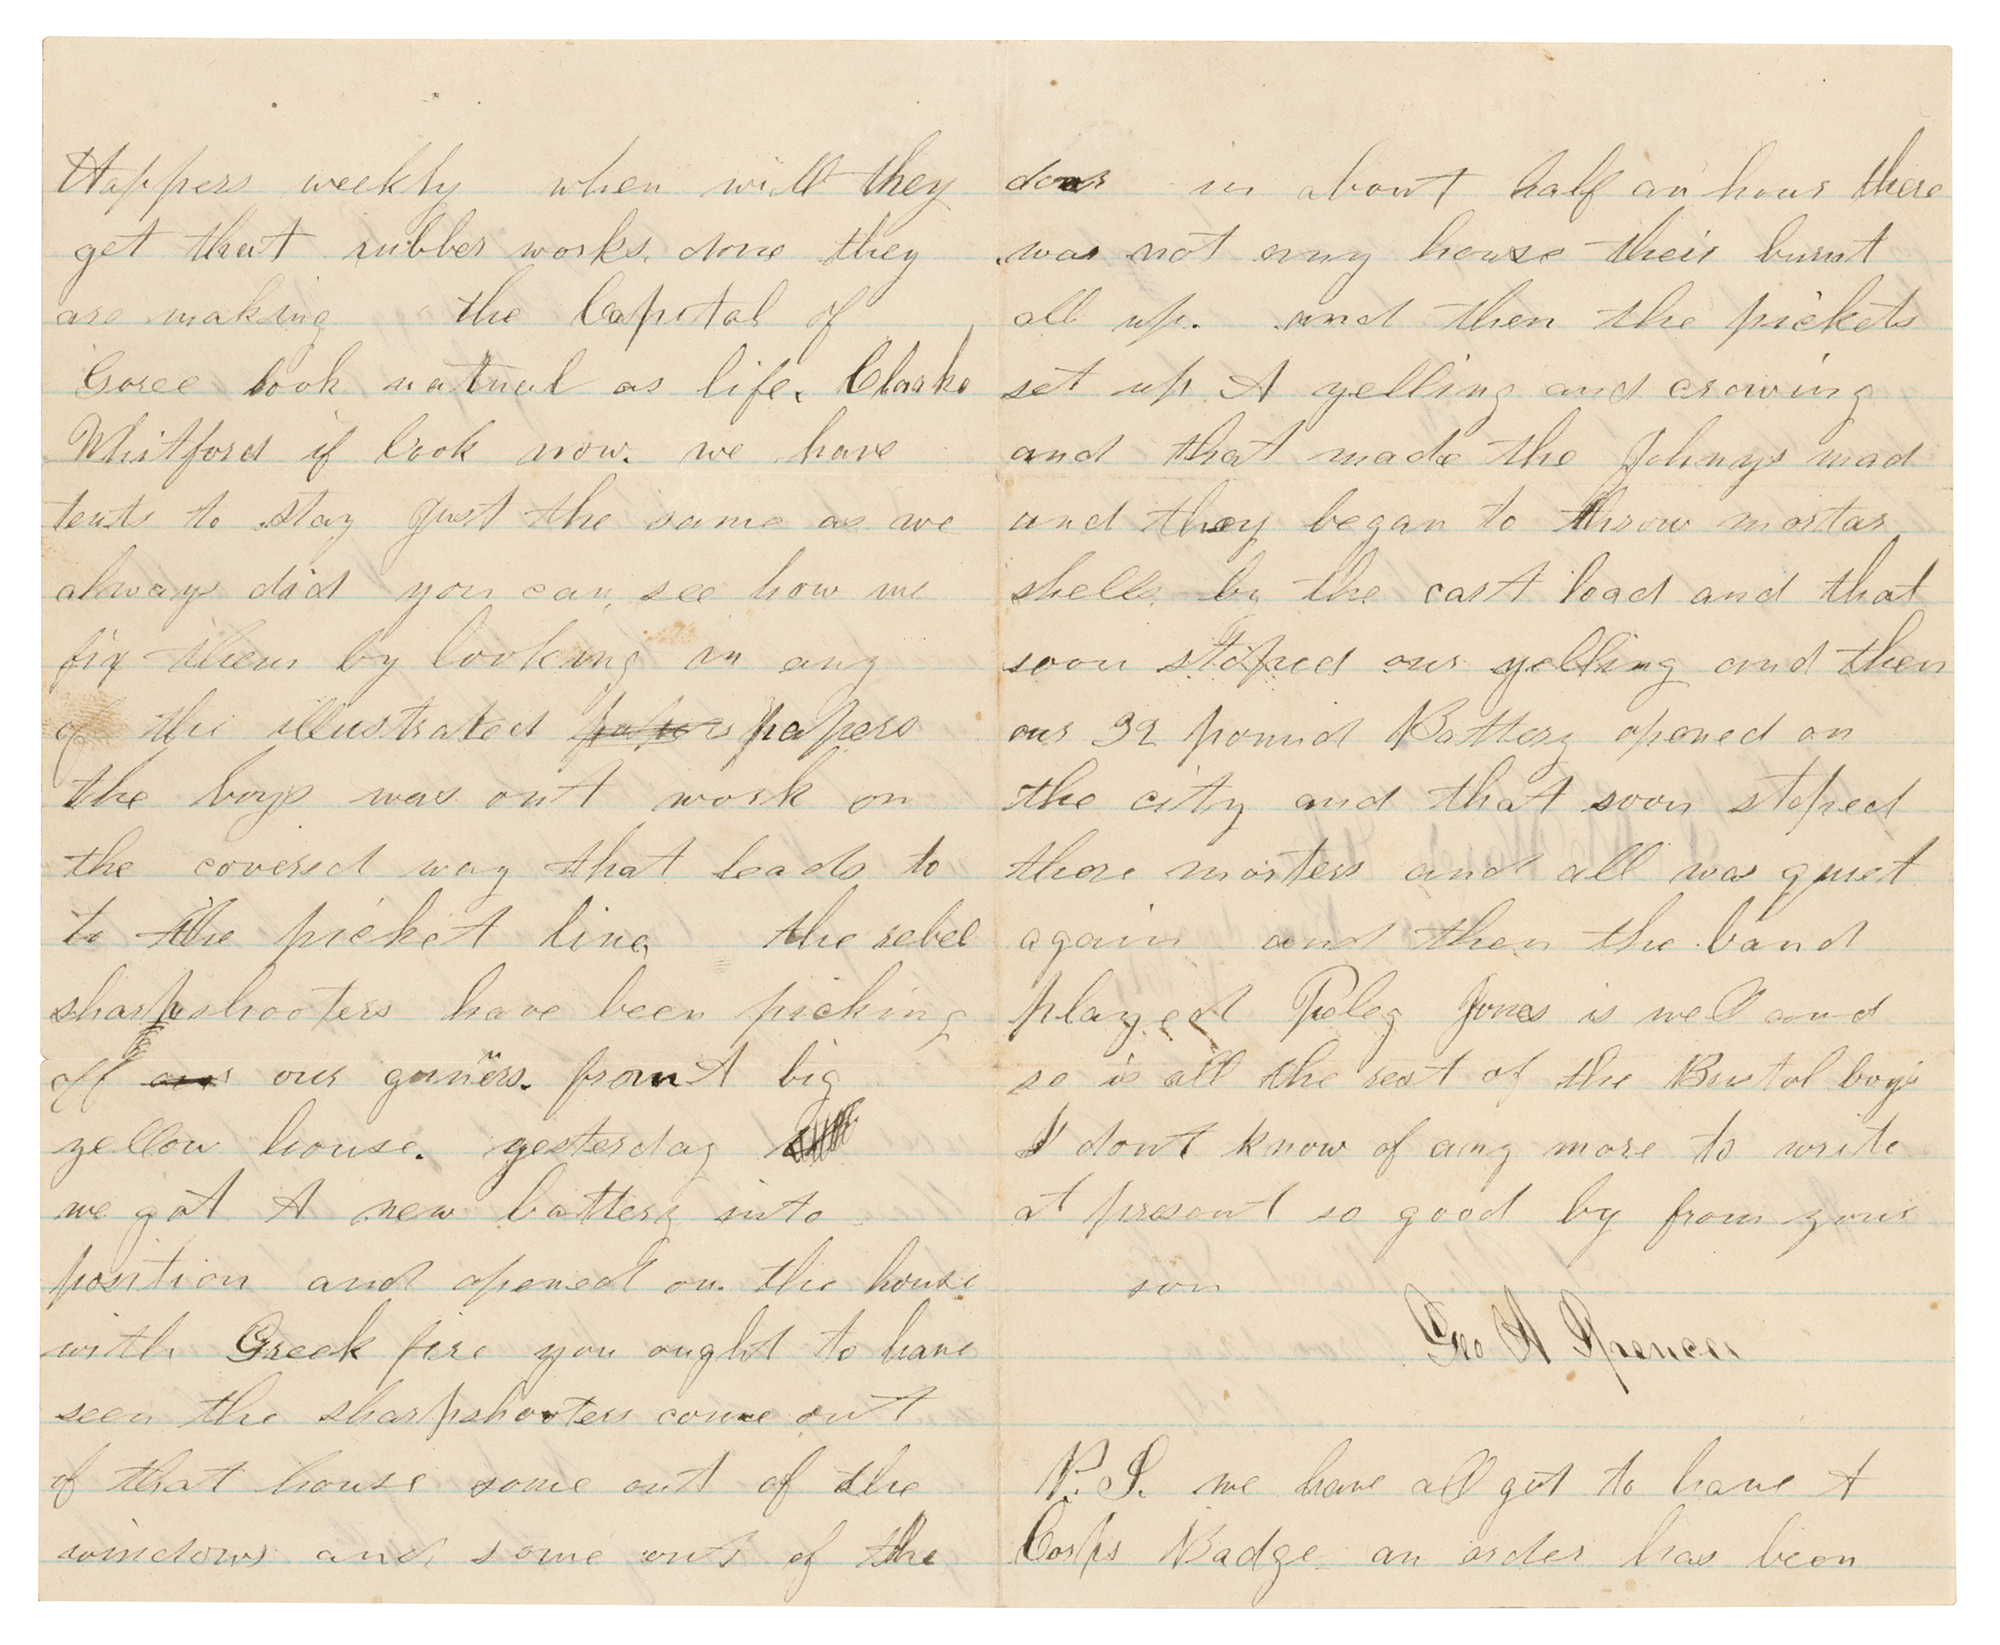 Happers weekly when will they
get that rubber works done they
are making the Capital of
Goree look natural as life, Clarke
Whitford if look now. we have
tents to stay Just the same as we
always did you can see how we
fix them by looking in any
of the illustrated papers papers
the boys was out work on
the covered way that leads to
to the picket line the rebel
sharpshooters have been picking
off our our gunners. from A big
yellow house. yesterday
we got A new battery into
position and opened on the house
with Greek fire you ought to have
seen the sharpshooters come out
of that house some out of the
windows and some out of the
door in about half an hour there
was not eny house their burnt
all up. and then the pickets
set up A yelling and crowing
and that made the Johnys mad
and they began to throw mortar
shells by the cart load and that
soon stoped our yelling and then
our 32 pound Battery opened on
the city and that soon stoped
there morters and all was quiet
again and then the band
played Peleg Jones is well and
so is all the rest of the Bristol boys
I dont know of any more to write
at present so good by from your
son
Geo A Spencer
P.S. we have all got to have A
Corps Badge an order has been